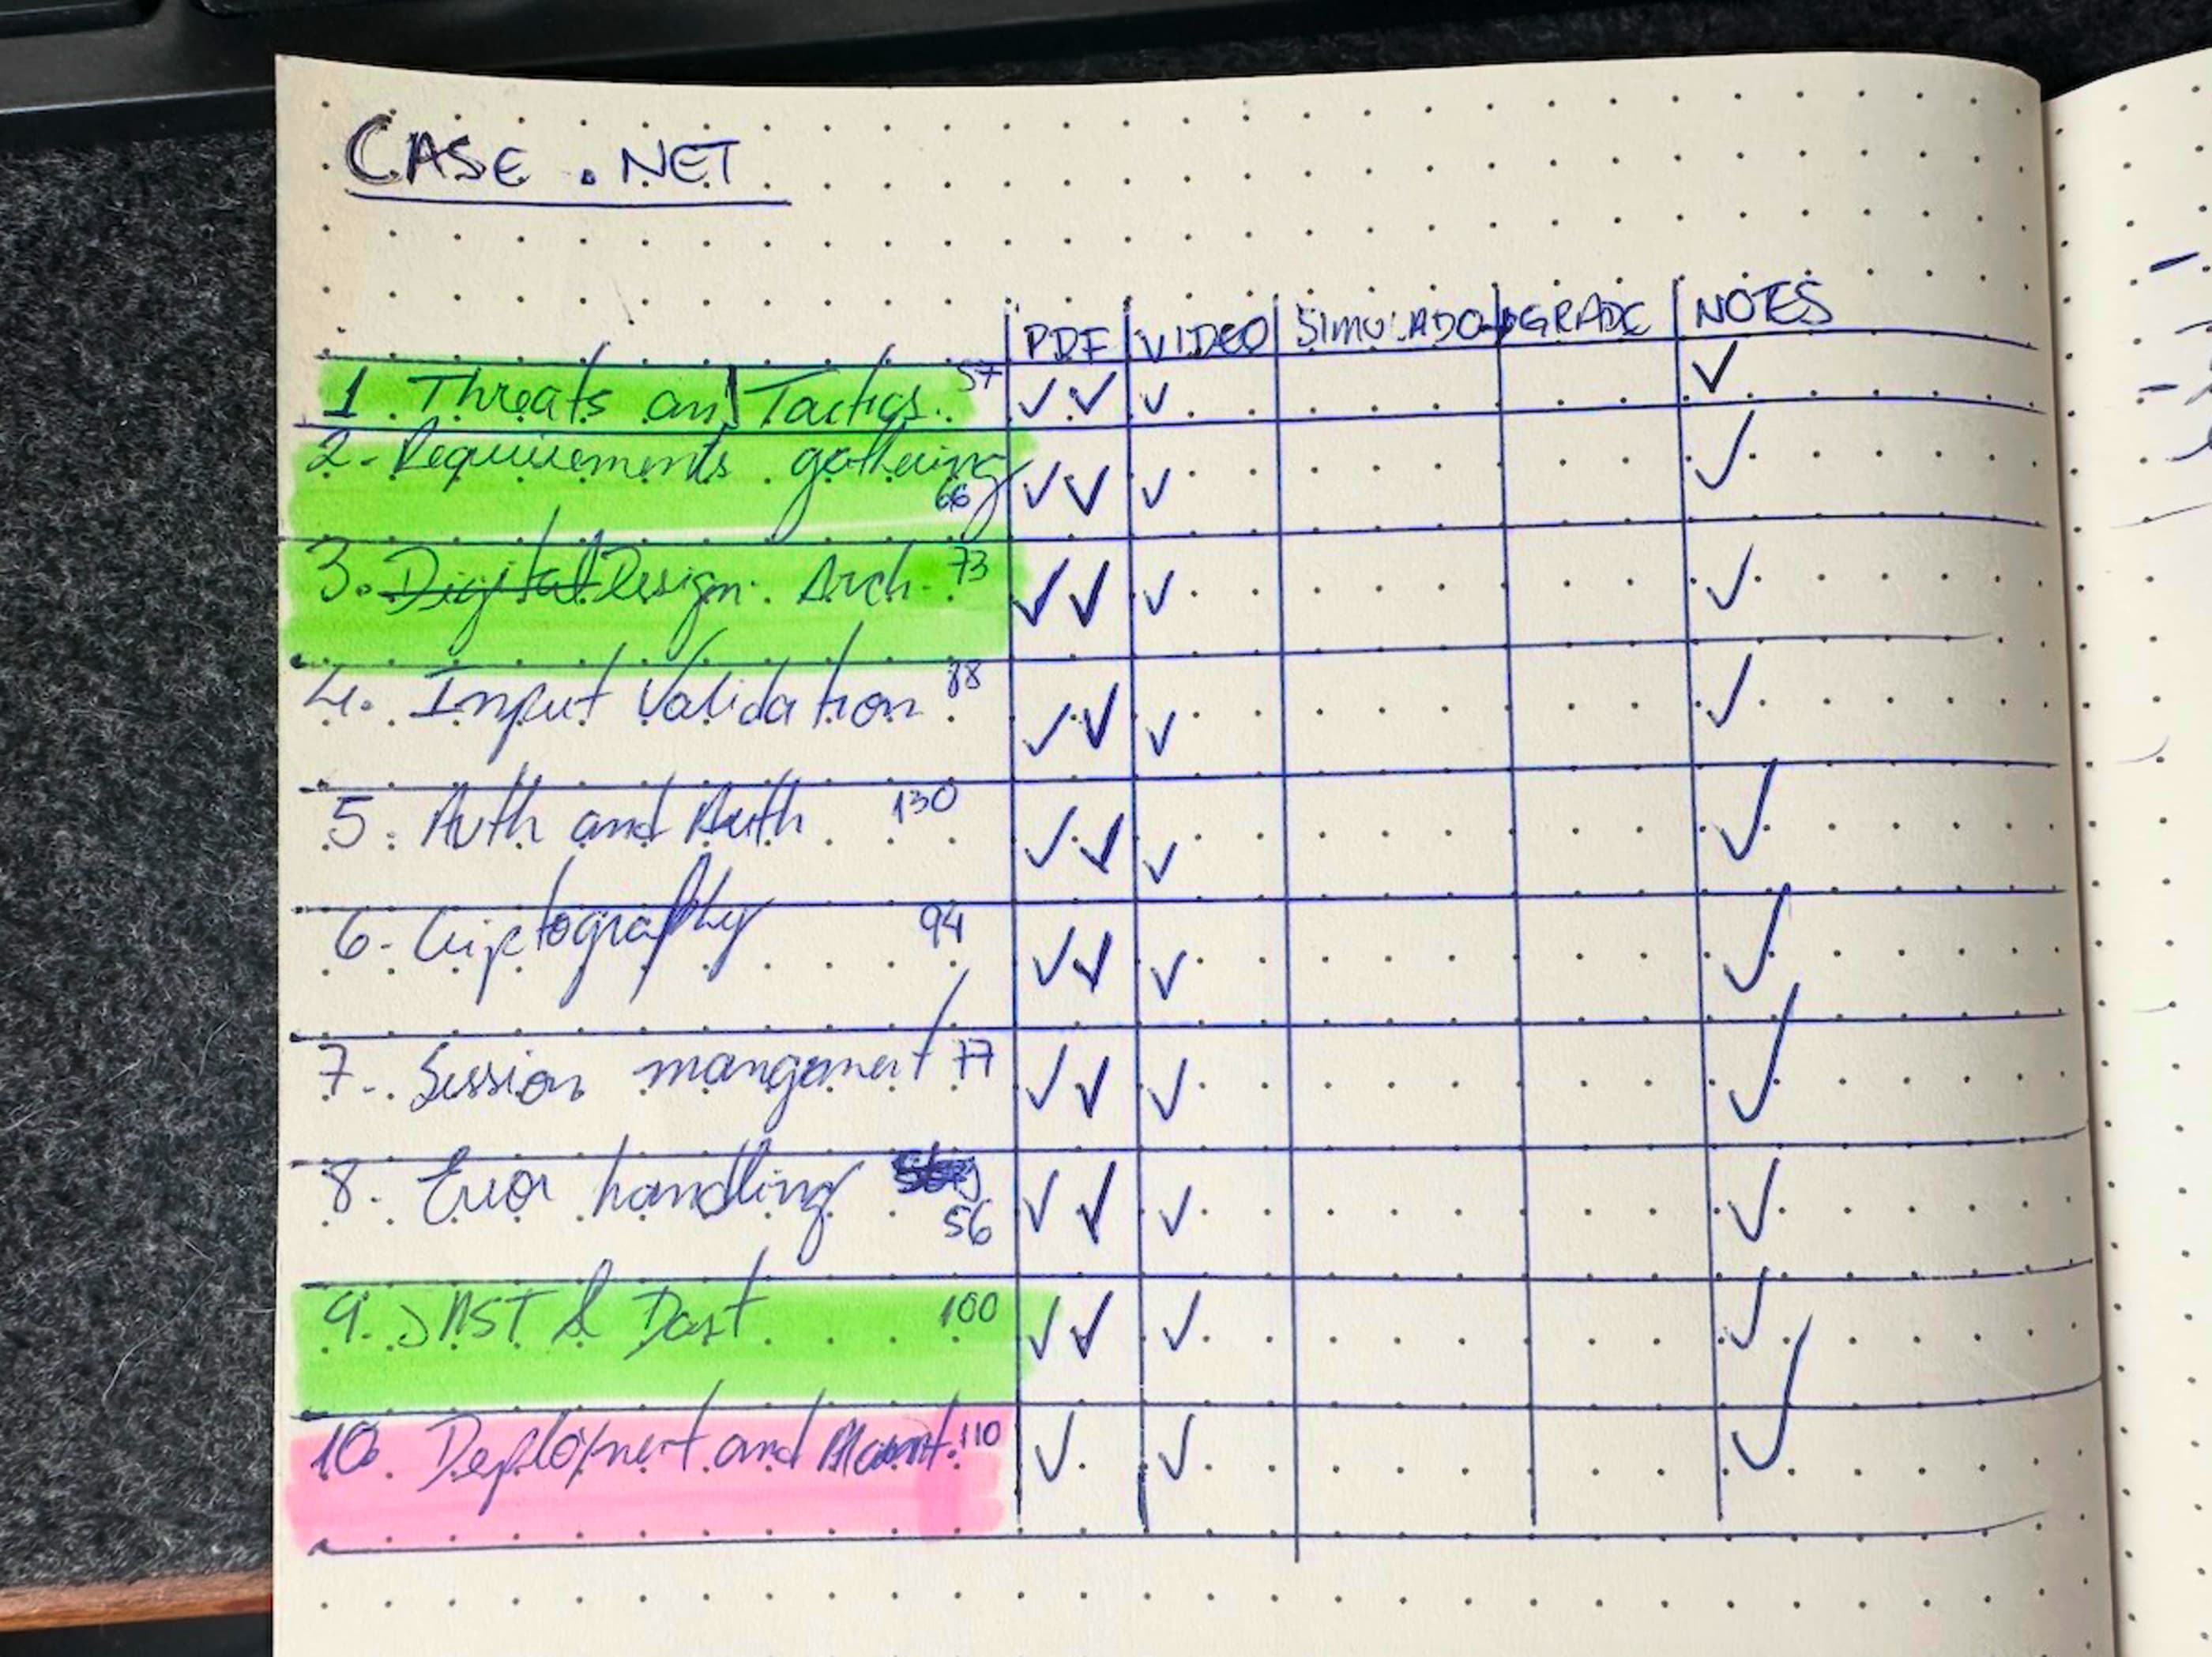 CASE .NET
PDF VIDEO SIMULADO GRADE NOTES
1. Threats and Tactics 57 ✓✓ ✓ ✓
2. Requirements gathering 66 ✓✓ ✓ ✓
3. Digital Design Arch. 73 ✓✓ ✓ ✓
4. Input Validation 88 ✓✓ ✓ ✓
5. Auth and Auth 130 ✓✓ ✓ ✓
6. Criptography 94 ✓✓ ✓ ✓
7. Session mangement 77 ✓✓ ✓ ✓
8. Error handling 56 ✓✓ ✓ ✓
9. SAST & Dast 100 ✓✓ ✓ ✓
10. Deployment and Maint. 110 ✓ ✓ ✓